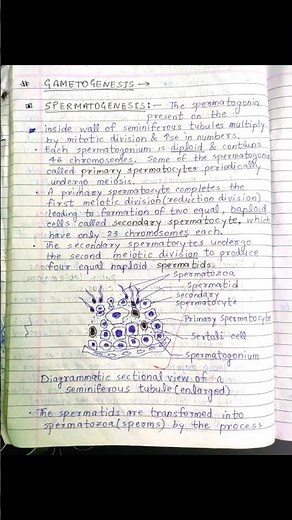 # GAMETOGENESIS →
SPERMATOGENESIS:- The spermatogonia
present on the
inside wall of seminiferous tubules multiply
by mitotic division & ↑se in numbers.
• Each spermatogonium is diploid & contains
46 chromosomes. Some of the spermatogonia
called primary spermatocytes periodically
undergo meiosis.
• A primary spermatocyte completes the
first meiotic division (reduction division)
leading to formation of two equal, haploid
cells called secondary spermatocyte, which
have only 23 chromosomes each.
• The secondary spermatocytes undergo
the second meiotic division to produce
four equal haploid spermatids.
Spermatozoa
Spermatid
secondary
spermatocyte
Primary spermatocyte
Sertoli cell
Spermatogonium
Diagrammatic sectional view of a
seminiferous tubule (enlarged)
• The spermatids are transformed into
spermatozoa (sperms) by the process